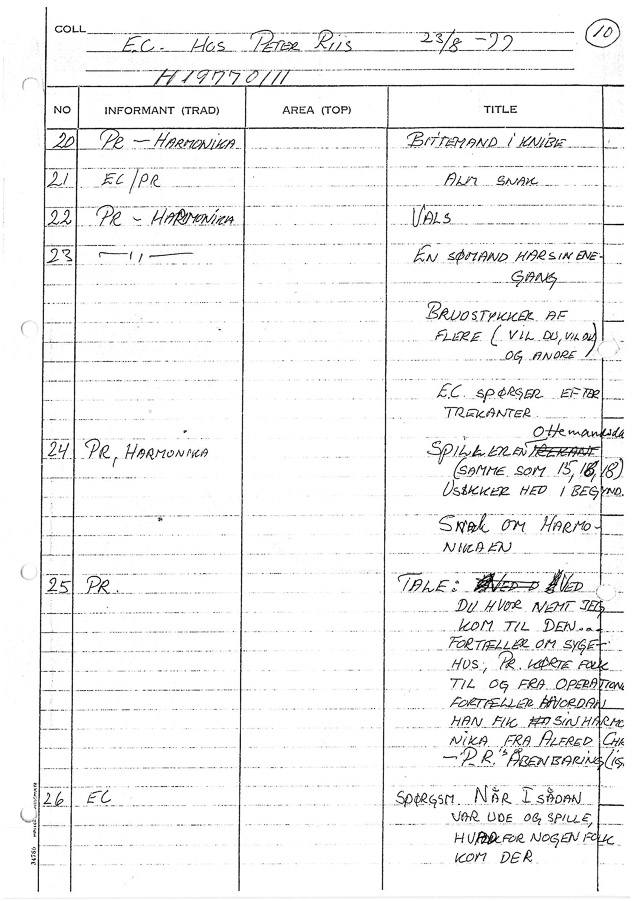 COLL E.C. HOS PETER RIIS 23/8 -77 10
H 19770/11
NO INFORMANT (TRAD) AREA (TOP) TITLE
20 PR - HARMONIKA BITTEMAND I KNIBE
21 EC/PR ALM SNAK
22 PR - HARMONIKA VALS
23 —,,— EN SØMAND HAR SIN ENE-
GANG
BRUDSTYKKER AF
FLERE (VIL DU, VIL DU)
OG ANDRE
E.C. SPØRGER EFTER
TREKANTER
Ottemandsda
24 PR, HARMONIKA SPILLER EN TREKANT
(SAMME SOM 15, 16, 18)
USIKKER HED I BEGYND.
SNAK OM HARMO-
NIKAEN
25 PR. TALE: VED
DU HVOR NEMT JEG
KOM TIL DEN...
FORTÆLLER OM SYGE-
HUS, PR. KØRTE FOLK
TIL OG FRA OPERATION
FORTÆLLER HVORDAN
HAN FIK SIN HARMO
NIKA FRA ALFRED CHR
- P.R.'s ÅBENBARING
26 EC SPØRGSM. NÅR I SÅDAN
VAR UDE OG SPILLE,
HVAD FOR NOGEN FOLK
KOM DER
34786